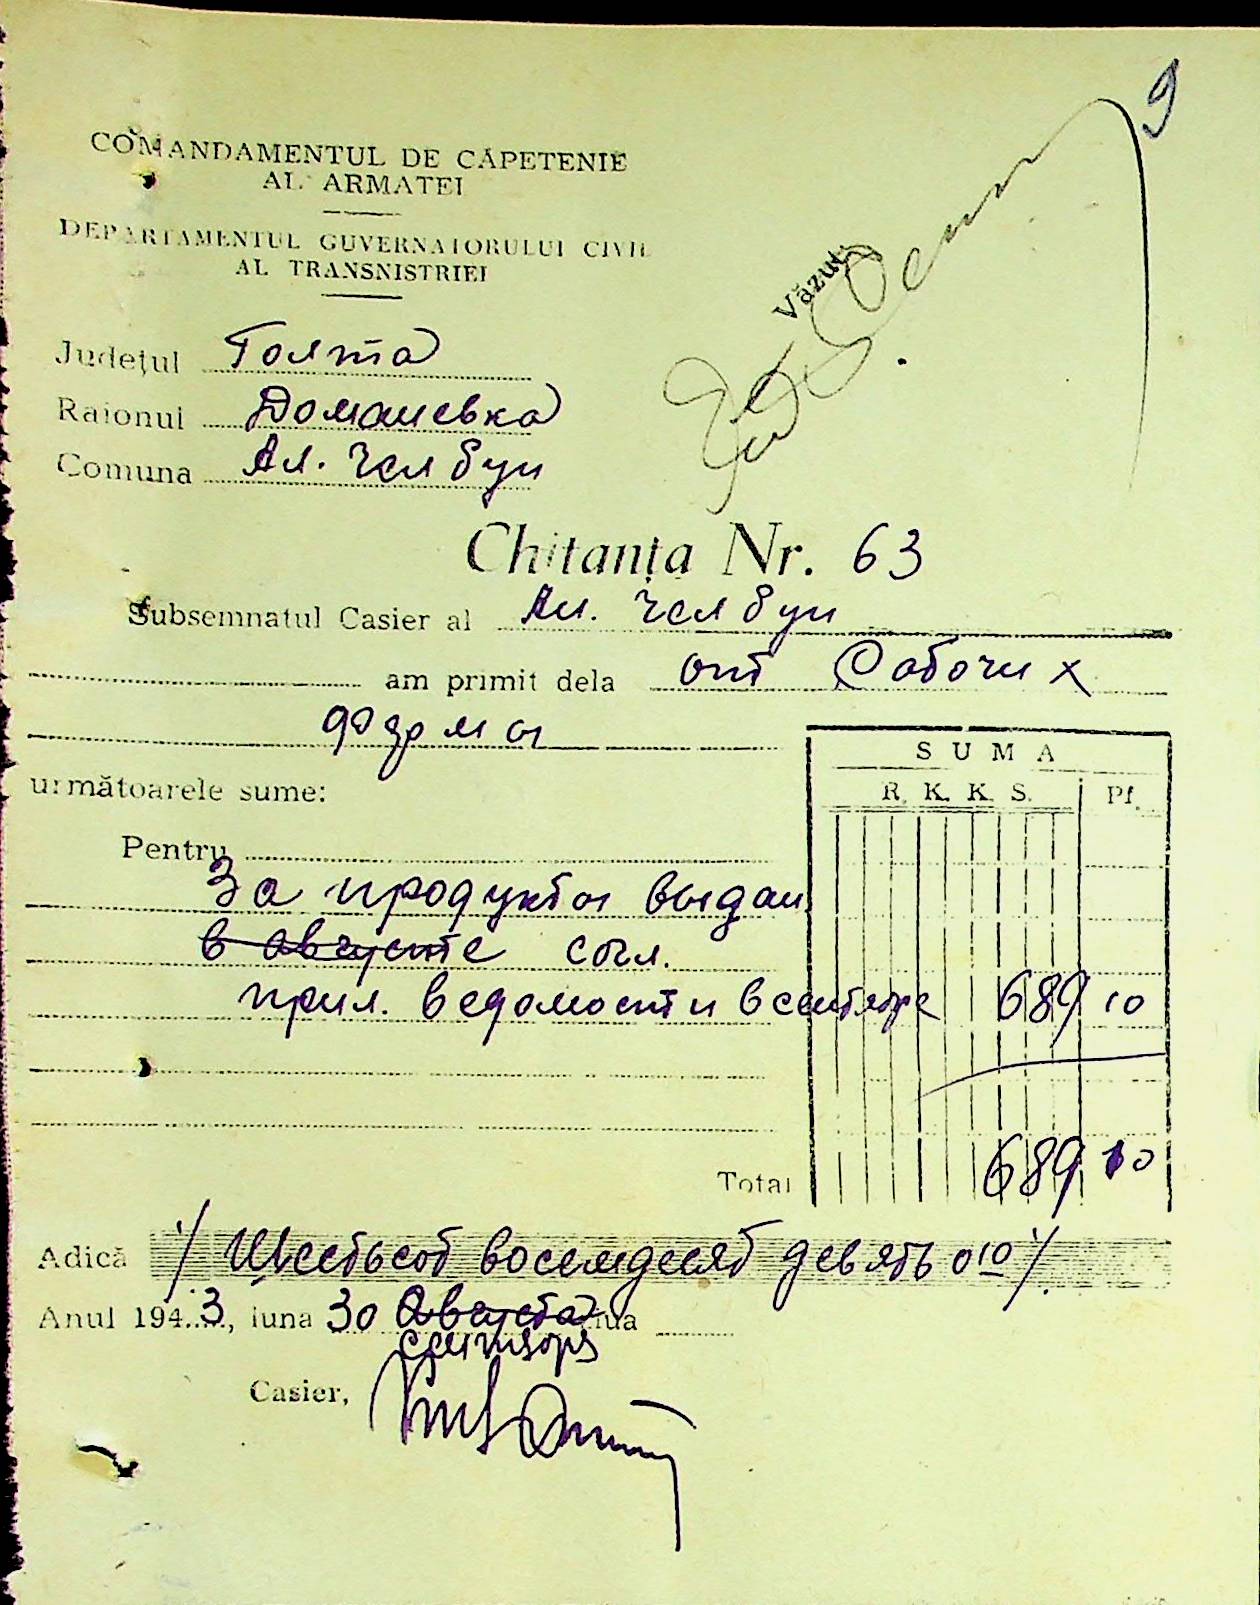 9
COMANDAMENTUL DE CĂPETENIE
AL ARMATEI
DEPARTAMENTUL GUVERNATORULUI CIVIL
AL TRANSNISTRIEI
Văzut
Județul Голта
Raionul Домашевка
Comuna Ал. Челбуи
Chitanța Nr. 63
Subsemnatul Casier al Ал. Челбуи
am primit dela от Рабочих
фермы
SUMA
următoarele sume:
R. K. K. S. Pf.
Pentru
За продукты выдан
в августе согл.
прил. ведомости в сентябре 689 10
Total 689 10
Adică /Шестьсот восемдесят девять 010/.
Anul 194..3, luna 30 Августа ziua
сентября
Casier,